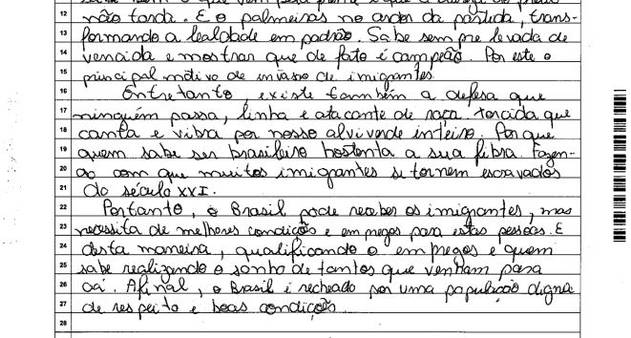 não tarda. E o palmeiras no ardor da partida, trans-
13 formando a lealdade em padrão. Sabe sempre levada de
14 vencida e mostrar que de fato é campeão. Por este o
15 principal motivo de invasão de imigrantes.
16 Entretanto, existe também a defesa que
17 ninguém passa, linha e atacante de raça. torcida que
18 canta e vibra por nosso alviverde inteiro. Por que
19 quem sabe ser brasileiro hostenta a sua fibra. Fazen-
20 do com que muitos imigrantes se tornem escravados
21 do século XXI.
22 Portanto, o Brasil pode receber os imigrantes, mas
23 necessita de melhores condições e empregos para estas pessoas. E
24 desta maneira, qualificando o empregos e quem
25 sabe realizando o sonho de tantos que venham para
26 cá. Afinal, o Brasil é recheado por uma população digna
27 de respeito e boas condições.
28